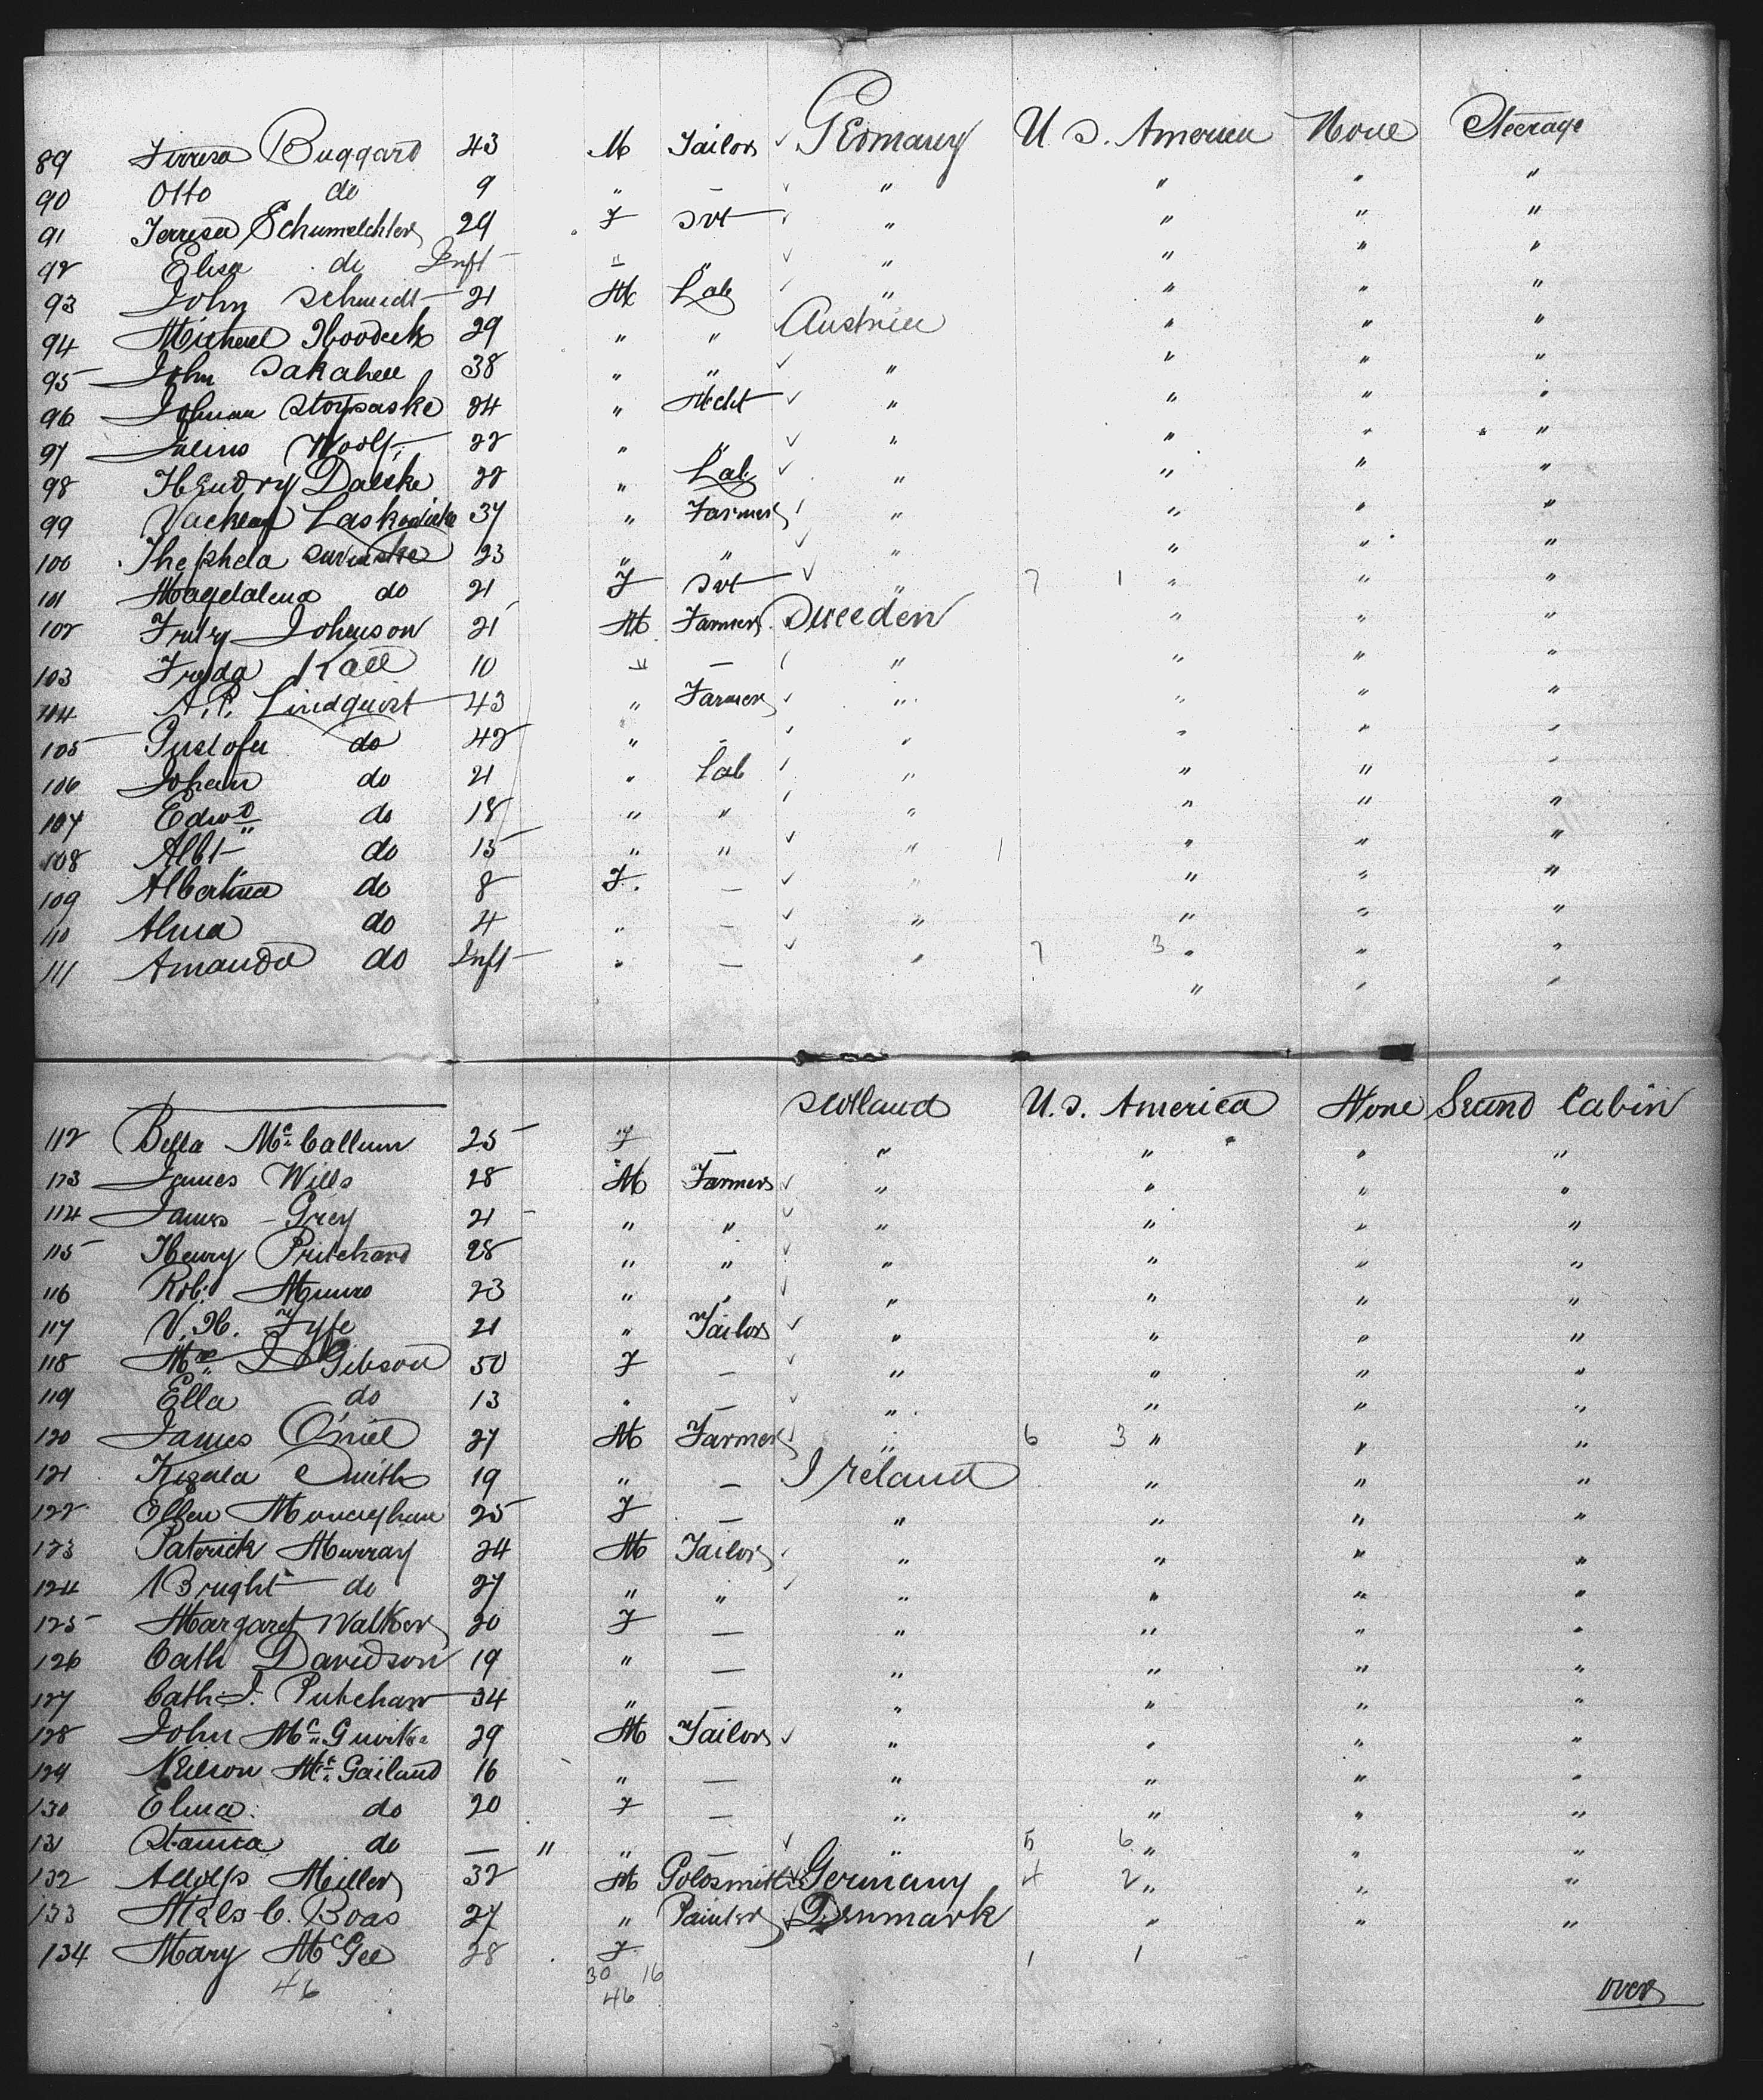 89 Jerresa Buggard 43 M Tailor ✓ Germany U. S. America None Steerage
90 Otto do 9 " — ✓ " " " "
91 Jerresa Schumelchler 29 F Svt ✓ " " " "
92 Elisa do Inft " " ✓ " " " "
93 John Schmidt 21 M Lab ✓ " " " "
94 Michael 29 " " Austria " " "
95 John Sakahell 38 " " ✓ " " " "
96 Johnan Stoypaske 24 " Mcht ✓ " " " "
97 Julins Woolf 22 " " ✓ " " " "
98 Hendry Dalske 22 " Lab ✓ " " " "
99 Laskodieke 37 " Farmer ✓ " " " "
100 Thephela 23 " " ✓ " " " "
101 Magdalena do 21 F Svt ✓ " 7 1 " " "
102 Johnson 21 M Farmer Sweeden " " "
103 Freda Kall 10 " — " " " "
104 A. P. Lindquist 43 " Farmer ✓ " " " "
105 Gustofa do 42 " - ✓ " " " "
106 Johan do 21 " Lab ✓ " " " "
107 Edwd do 18 " " ✓ " " " "
108 Albt do 15 " " ✓ " 1 " " "
109 Albertina do 8 F. — ✓ " " " "
110 Alma do 4 " — ✓ " " " "
111 Amanda do Inft " — ✓ " 7 3 " " "
" " "
Scotland U. S. America None Second Cabin
112 Bella Mc Callum 25 F — " " " "
113 James Wills 28 M Farmer ✓ " " " "
114 James Grey 21 " " ✓ " " " "
115 Henry Pritchard 28 " " ✓ " " " "
116 Robt Munro 23 " " ✓ " " " "
117 V. H. Fyfe 21 " Tailor ✓ " " " "
118 Mrs J Gibson 50 F — ✓ " " " "
119 Ella do 13 " — ✓ " " " "
120 James O'niel 27 M Farmer ✓ " 6 3 " " "
121 Kezala Smith 19 " — Ireland " " "
122 Ellen 25 F — " " " "
123 Paterick Murray 24 M Tailor ✓ " " " "
124 Bright do 27 " " ✓ " " " "
125 Margaret Walker 20 F — " " " "
126 Cath Davidson 19 " — " " " "
127 Cath J. 34 " — " " " "
128 John Mc 29 M Tailor ✓ " " " "
129 Neilson Mc Gailand 16 " — " " " "
130 Elma do 20 F — " " " "
131 do — " " — ✓ " 5 6 " " "
132 Adolfs Miller 32 M Goldsmith ✓ Germany 4 2 " " "
133 Niels C. Boas 27 " Painter ✓ Denmark " " "
134 Mary McGee 28 F 1 1
46 30 16
46
over